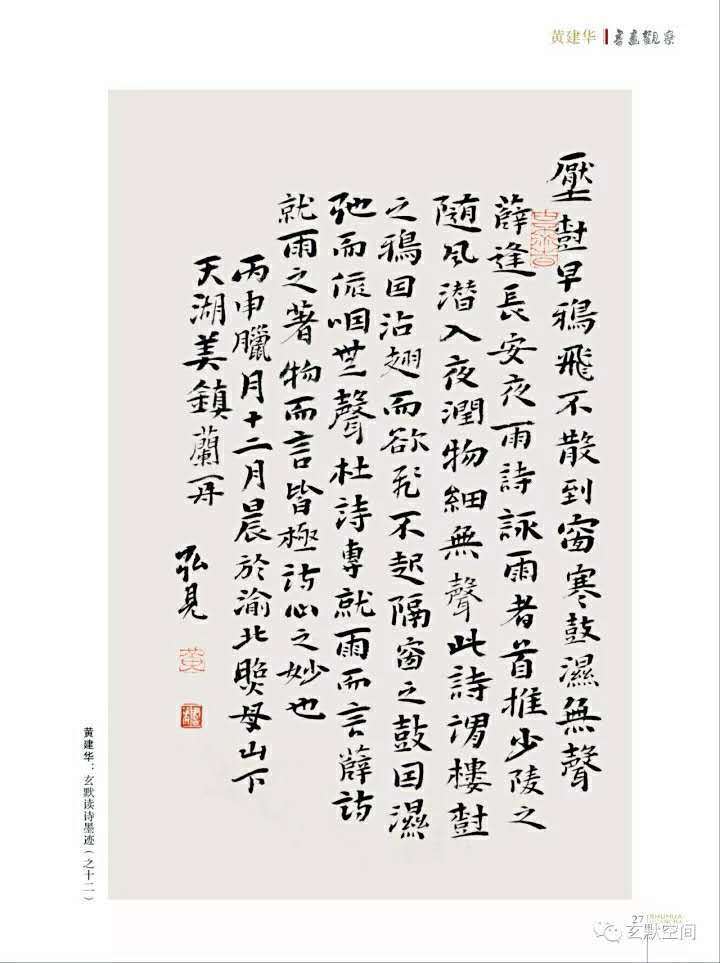 黄建华 書畫觀察
壓樹早鴉飛不散到窗寒鼓濕無聲
薛逢長安夜雨詩詠雨者首推少陵之
隨風潛入夜潤物細無聲此詩谓樓樹
之鴉因沾翅而欲飛不起隔窗之鼓因濕
弛而 咽無聲杜詩專就雨而言薛詩
就雨之著物而言皆極詩心之妙也
丙申臘月十二月晨於渝北照母山下
天湖美鎮蘭 弘見
黄
黄建华：玄默读诗墨迹（之十二）
27
SHUHUA
玄默空间